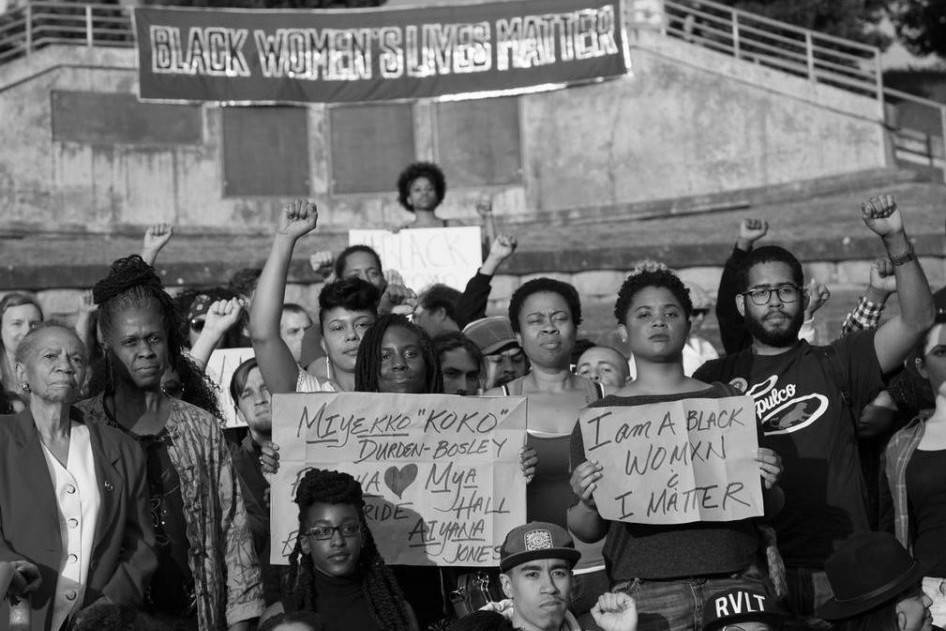 BLACK WOMEN'S LIVES MATTER
#BLACK
MIYEKKO "KOKO"
DURDEN-BOSLEY
MYA
HALL
AIYANA
JONES
I AM A BLACK
WOMXN
&
I MATTER
RVLT